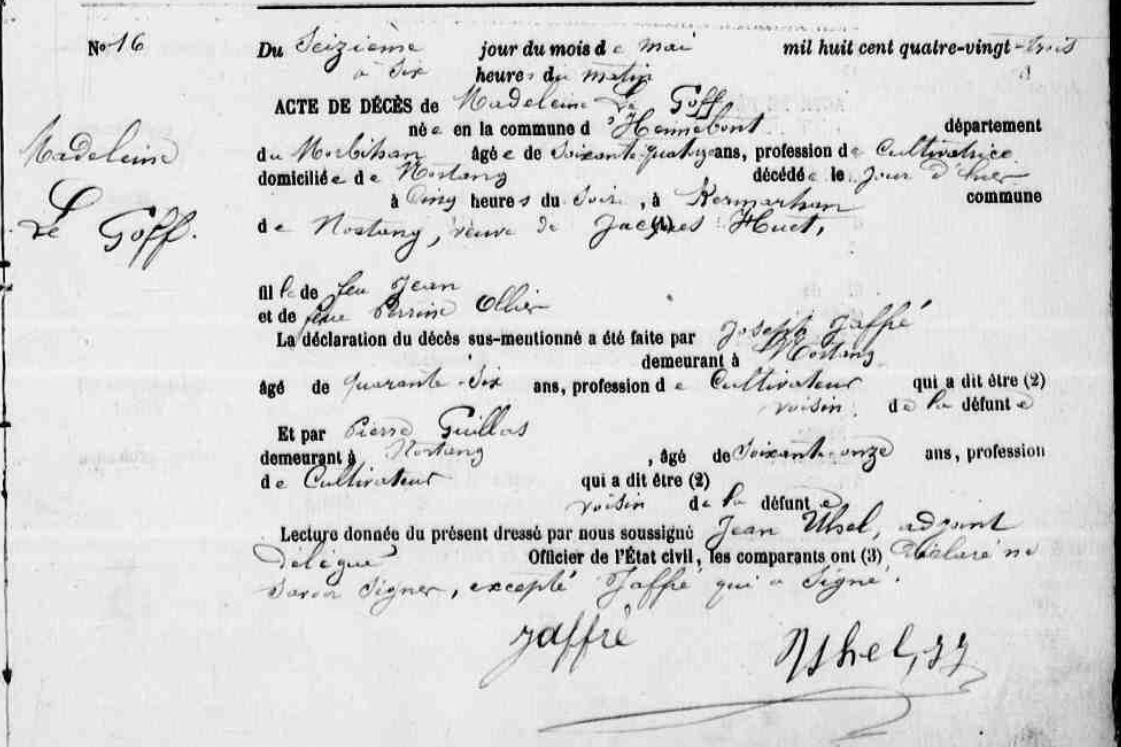 No 16
Du Seizième jour du mois de mai mil huit cent quatre-vingt-trois
à Six heures du matin
ACTE DE DÉCÈS de Madeleine Le Goff
née en la commune d'Hennebont département
du Morbihan âgée de soixante-quatorze ans, profession de Cultivatrice
domiciliée de Nostang décédée le jour d'hier
à Cinq heures du Soir, à Kermarhan commune
de Nostang, veuve de Jacques Huet,
(1)
Madeleine
Le Goff.
fille de feu Jean
et de feue Perrine Ollier
La déclaration du décès sus-mentionné a été faite par Joseph Jaffré
demeurant à Nostang
âgé de quarante-Six ans, profession de Cultivateur qui a dit être (2)
voisin de la défunte
Et par Pierre Guillas
demeurant à Nostang, âgé de Soixante-onze ans, profession
de Cultivateur qui a dit être (2)
voisin de la défunte
Lecture donnée du présent dressé par nous soussigné Jean adjoint
Délégué Officier de l'État civil, les comparants ont (3) déclaré ne
Savoir Signer, excepté Jaffré qui a Signé.
Jaffré